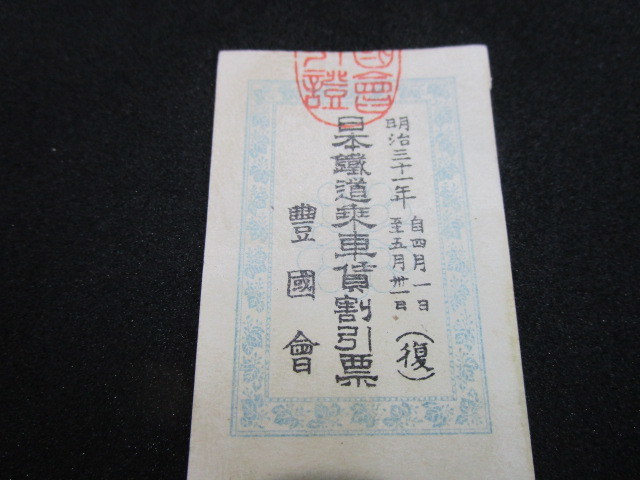 明治三十一年
自四月一日
至五月卅一日
(復)
日本鐵道乘車賃割引票
豐國會
國會
證